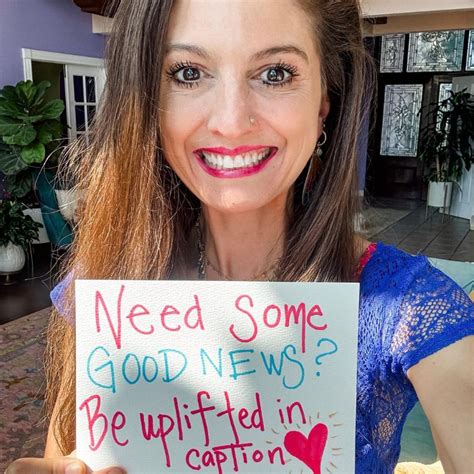 Need Some
GOOD NEWS?
Be uplifted in
caption